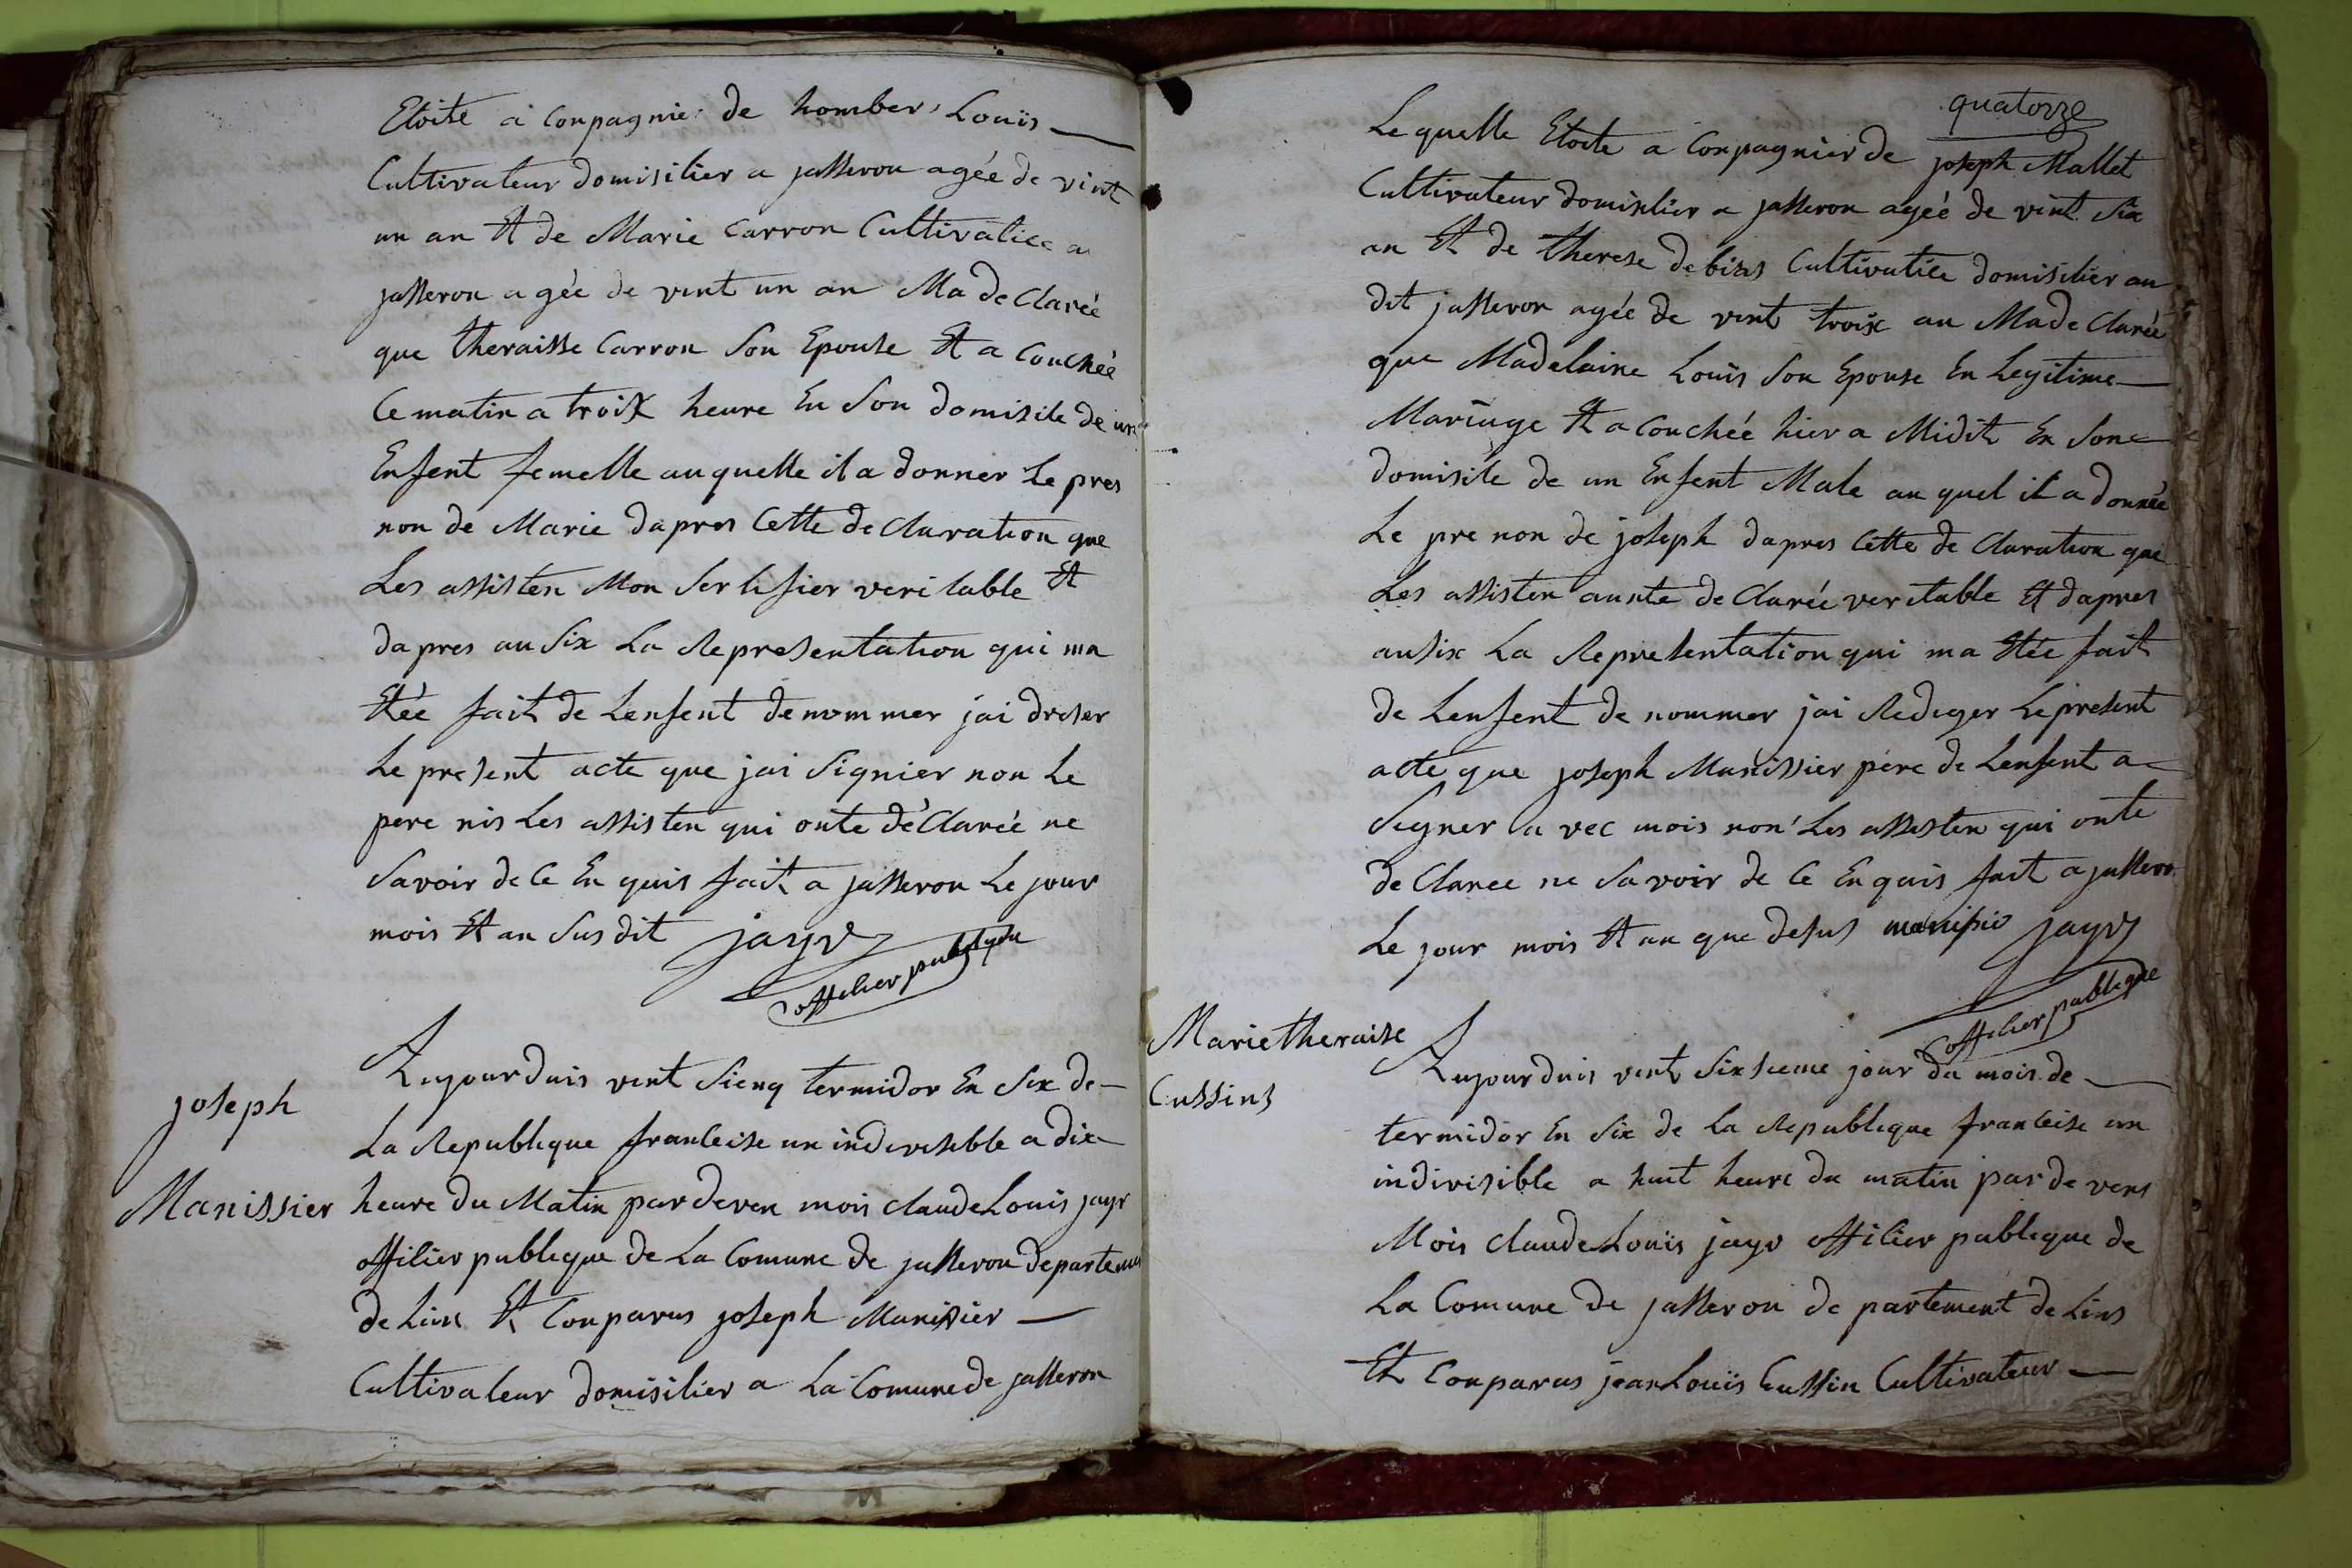 Etoite a Conpagnier de homber Louis
Cultivateur domisilier a jasseron agée de vint
un an Et de Marie Carron Cultivatice a
jasseron agée de vint un an Ma de Clarée
que theraisse Carron Son Epouse Et a Couchée
Ce matin a troix heure En Son domisile de un
Enfent femelle auquelle il a donner Le pres
non de Marie dapres Cette de Claration que
Les assisten Mon Sertifier veritable Et
dapres au Six La Representation qui ma
Etée fait de Lenfent denommer jai dreser
Le present acte que jai Signier non Le
pere nis Les assisten qui onte déClarée ne
Savoir de Ce En quis fait a jasseron Le jour
mois Et an Susdit jayr
offilier publique
joseph
Manissier
Aujourduis vent Sienq termidor En Six de
La Republique franleise un indivisible a dix
heure du Matin par deven mois claude Louis jayr
offilier publique de La Comune de jasseron departemen
de Linx Et Conparus joseph Manissier
Cultivateur domisilier a La Comune de jasseron
quatorze
Le quelle Etoite a Conpagnier de joseph Mallet
Cultivateur domisilier a jasseron agéé de vint Six
an Et de therese debias Cultivatice domisilier au
dit jasseron agée de vint troix an Ma de Clarée
que Madelaine Louis Son Epouse En Legitime
Mariage Et a Couchéé hier a Midit En Son
domisile de un Enfent Male au quel il a donnée
Le pre non de joseph dapres Cette de Claration que
Les assisten aunte de Clarée veritable Et dapres
ausix La Representation qui ma Etée fait
de Lenfent de nommer jai Rediger Le present
acte que joseph Manissier père de Lenfent a
Segner a vec mois non Les assisten qui onte
de Claree ne Savoir de Ce En quis fait a jasseron
Le jour mois Et an que desus manisié jayr
offilier publique
Marietheraise
Cussins
Aujourduis vent Sixsieme jour du mois de
termidor En Six de La Republique franleise un
indivisible a huit heure du matin par de vens
Mois claude Louis jayr offilier publique de
La Comune de jasseron de partement de Lins
Et Conparus jean Louis Cussin Cultivateur